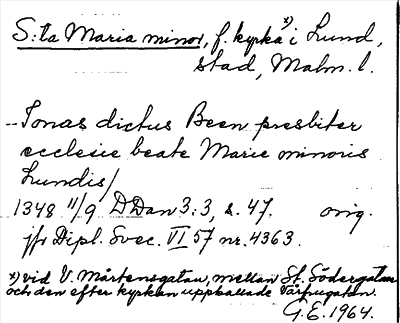 S:ta Maria minor, f. kyrka x) i Lund,
stad, Malm. l.
Jonas dictus Been presbiter
ecclesie beate Marie minoris
Lundis/
1348 11/9 DDan 3:3, s. 47. orig.
jfr Dipl. Svec. VI 57 nr. 4363.
x) vid V. Mårtensgatan, mellan St. Södergatan
och den efter kyrkan uppkallade Vårfrugatan.
G.E. 1964.